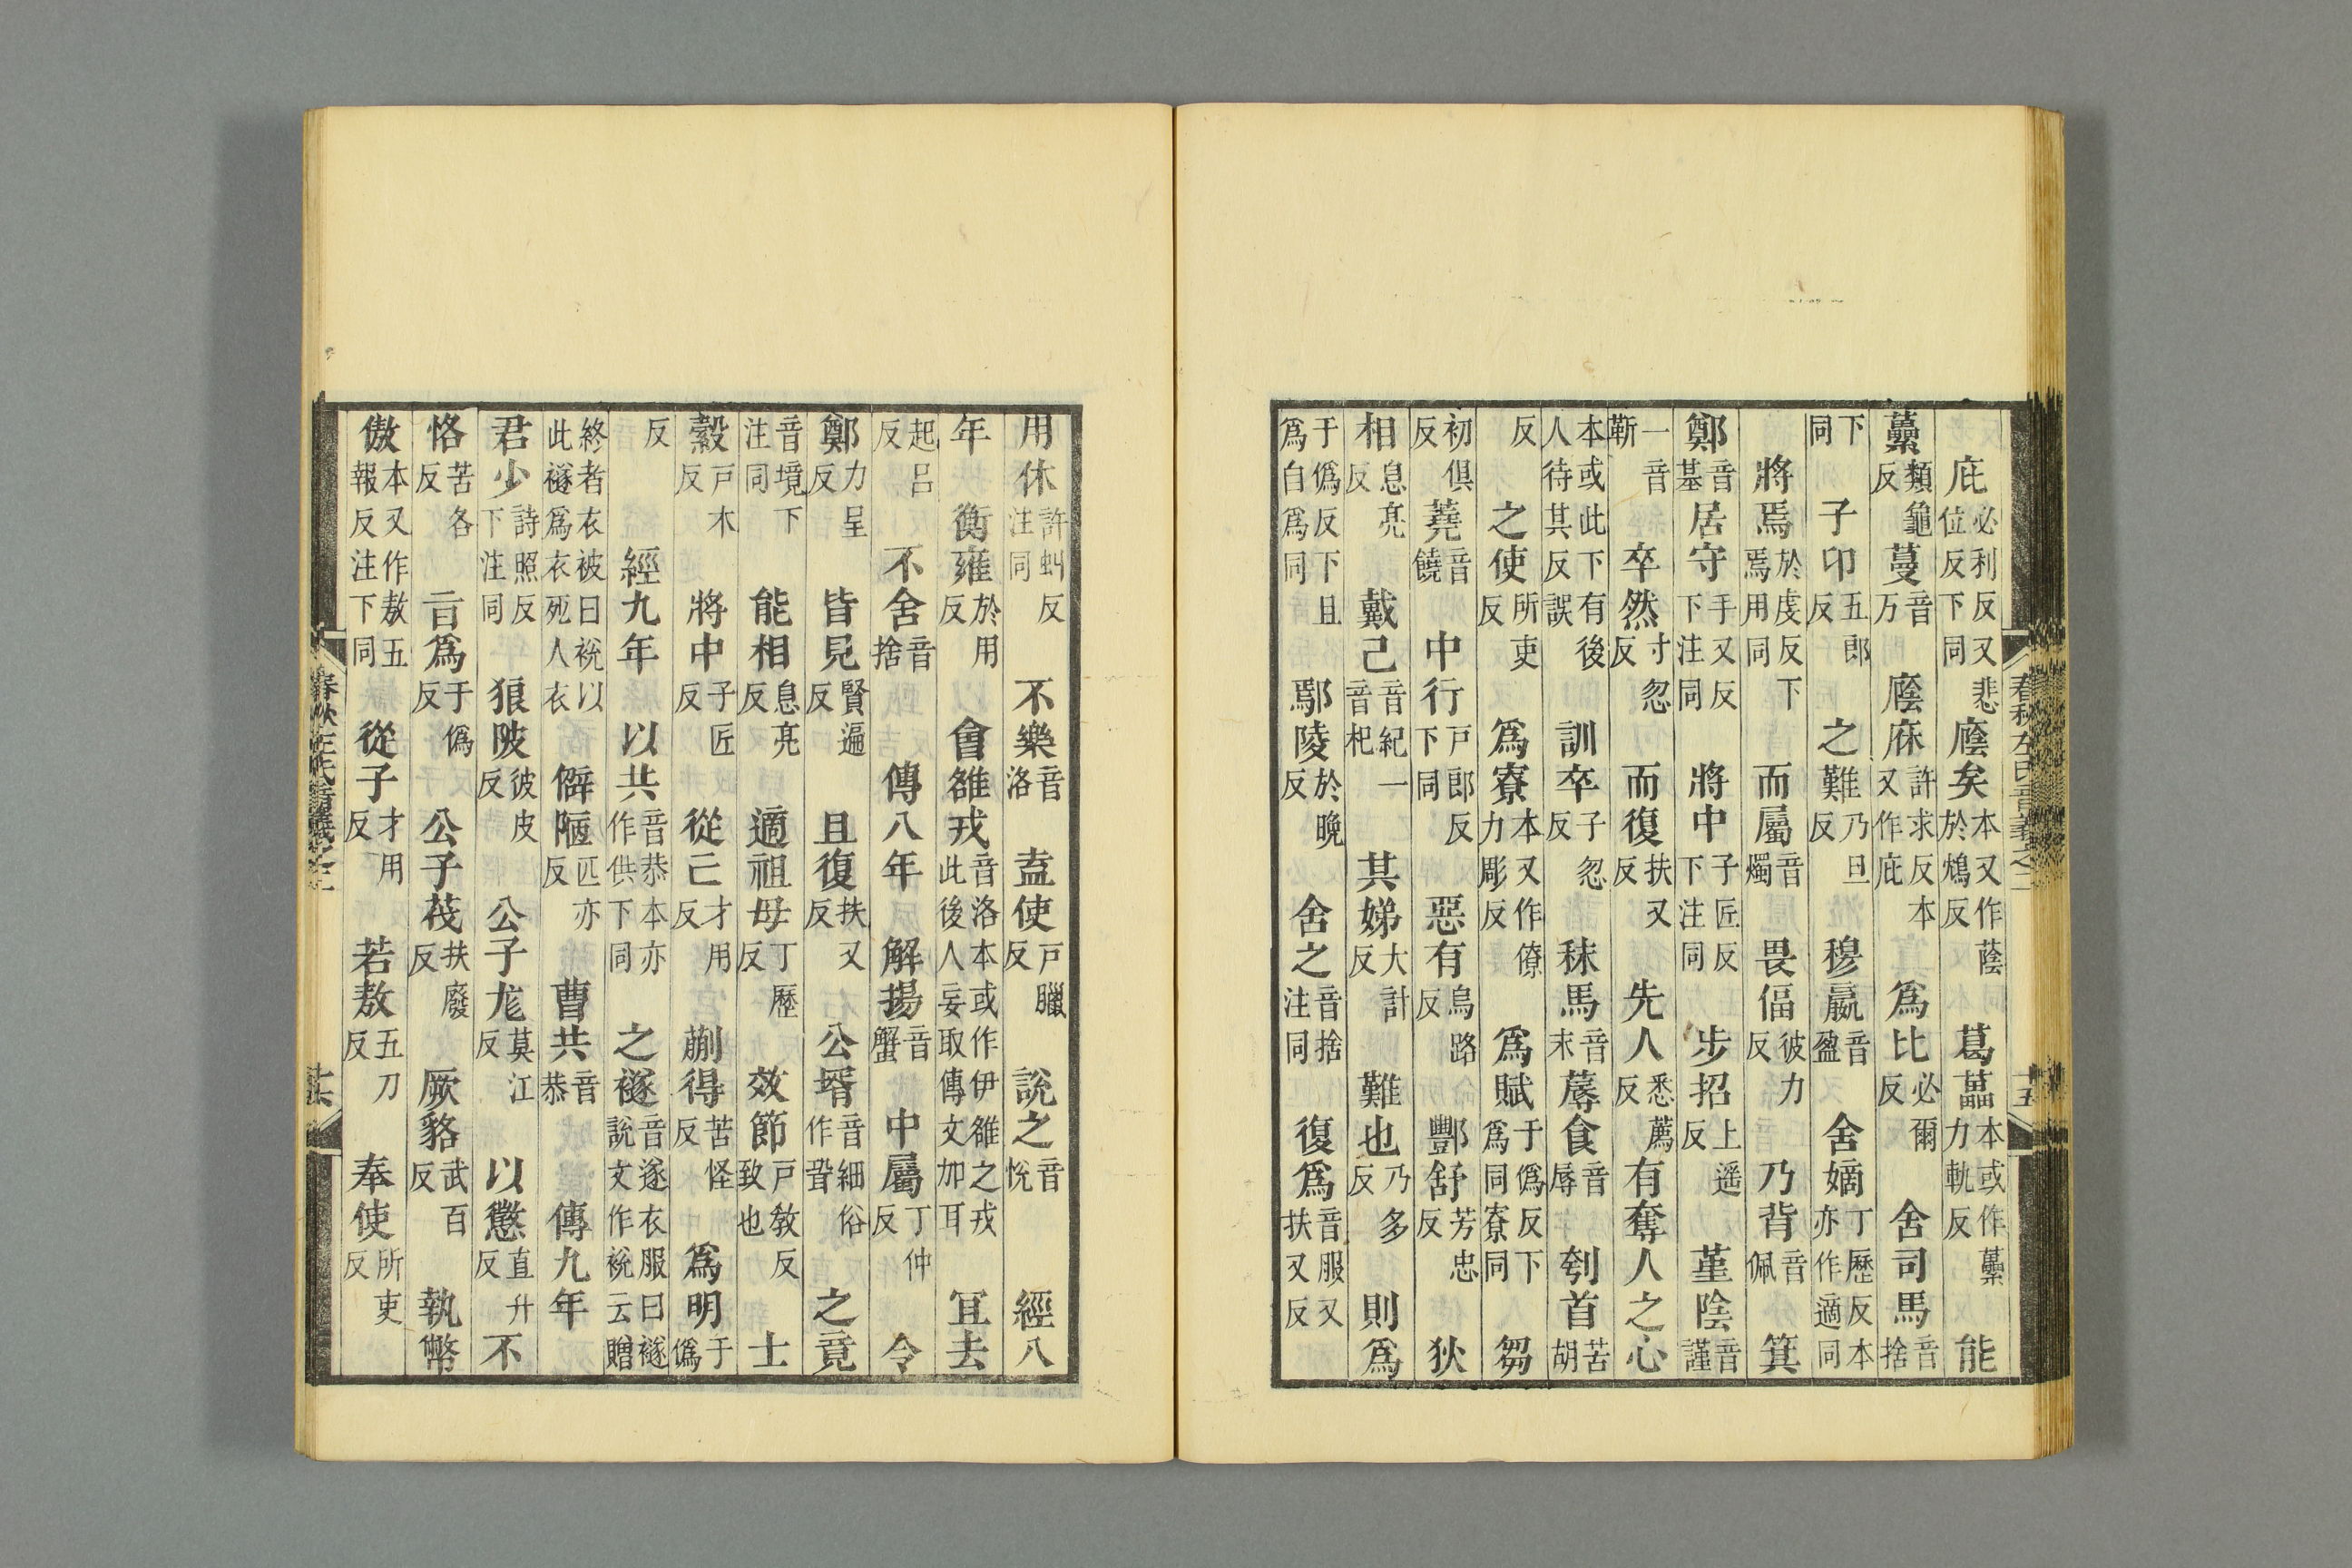 春秋左氏音義之二 十五
庇必利反又悲位反下同廕矣本又作蔭於鴆反葛藟本或作虆力軌反能
虆類龜反蔓音万廕庥許求反本又作庇爲比必爾反舍司馬音捨
下同子卬五郎反之難乃旦反穆嬴音盈舍嫡丁歷反本亦作適同
將焉於虔反下焉用同而屬音燭畏偪彼力反乃背音佩箕
鄭音基居守手又反下注同將中子匠反下注同步招上遥反堇陰音謹
一音靳卒然寸忽反而復扶又反先人悉薦反有奪人之心
本或此下有後人待其反誤訓卒子忽反秣馬音末蓐食音辱刳首苦胡
反之使所吏反爲寮本又作僚力彫反爲賦于僞反下爲同寮同芻
初俱反蕘音饒中行戸郎反下同惡有烏路反酆舒芳忠反狄
相息亮反戴己音紀一音杞其娣大計反難也乃多反則爲
于僞反下且爲自爲同鄢陵於晚反舍之音捨注同復爲音服又扶又反
用休許虬反注同不樂音洛盍使戸臘反說之音悅經八
年衡雍於用反會雒戎音洛本或作伊雒之戎此後人妄取傳文加耳冝去
起呂反不舍音捨傳八年解揚音蟹中屬丁仲反令
鄭力呈反皆見賢遍反且復扶又反公壻音細俗作聟之竟
音境下注同能相息亮反適祖母丁歷反效節戸教反致也士
縠戸木反將中子匠反從己才用反蒯得苦怪反爲明于僞
反經九年以共音恭本亦作供下同之襚音遂衣服曰襚說文作祱云贈
終者衣被曰祱以此襚爲衣死人衣僻陋匹亦反曹共音恭傳九年
君少詩照反下注同狼陂彼皮反公子尨莫江反以懲直升反不
恪苦各反言爲于僞反公子茷扶廢反厥貉武百反執幣
傲本又作敖五報反注下同從子才用反若敖五刀反奉使所吏反
春秋左氏音義之二 十六